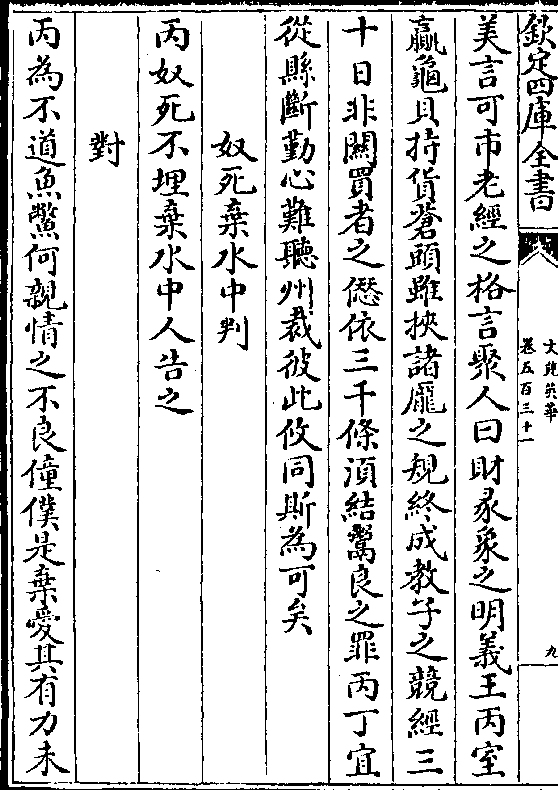 欽定四庫全書
文苑英華
卷五百三十一
九
美言可市老經之格言聚人曰財彖象之明義王丙室
贏龜貝持貨蒼頭雖挾諸龎之規終成教子之競經三
十日非關買者之愆依三千條湏結鬻良之罪丙丁宜
從縣斷勤心難聽州裁彼此攸同斯為可矣
奴死棄水中判
丙奴死不埋棄水中人告之
對
丙為不道魚鱉何親情之不良僮僕是棄愛其有力未